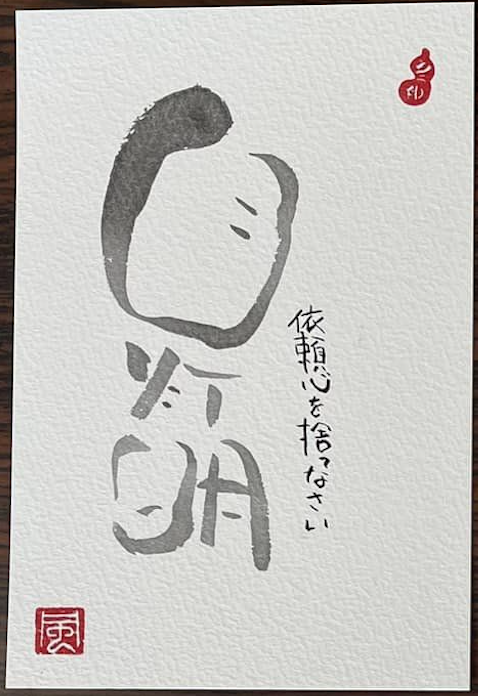 自灯明
依頼心を捨てなさい
風